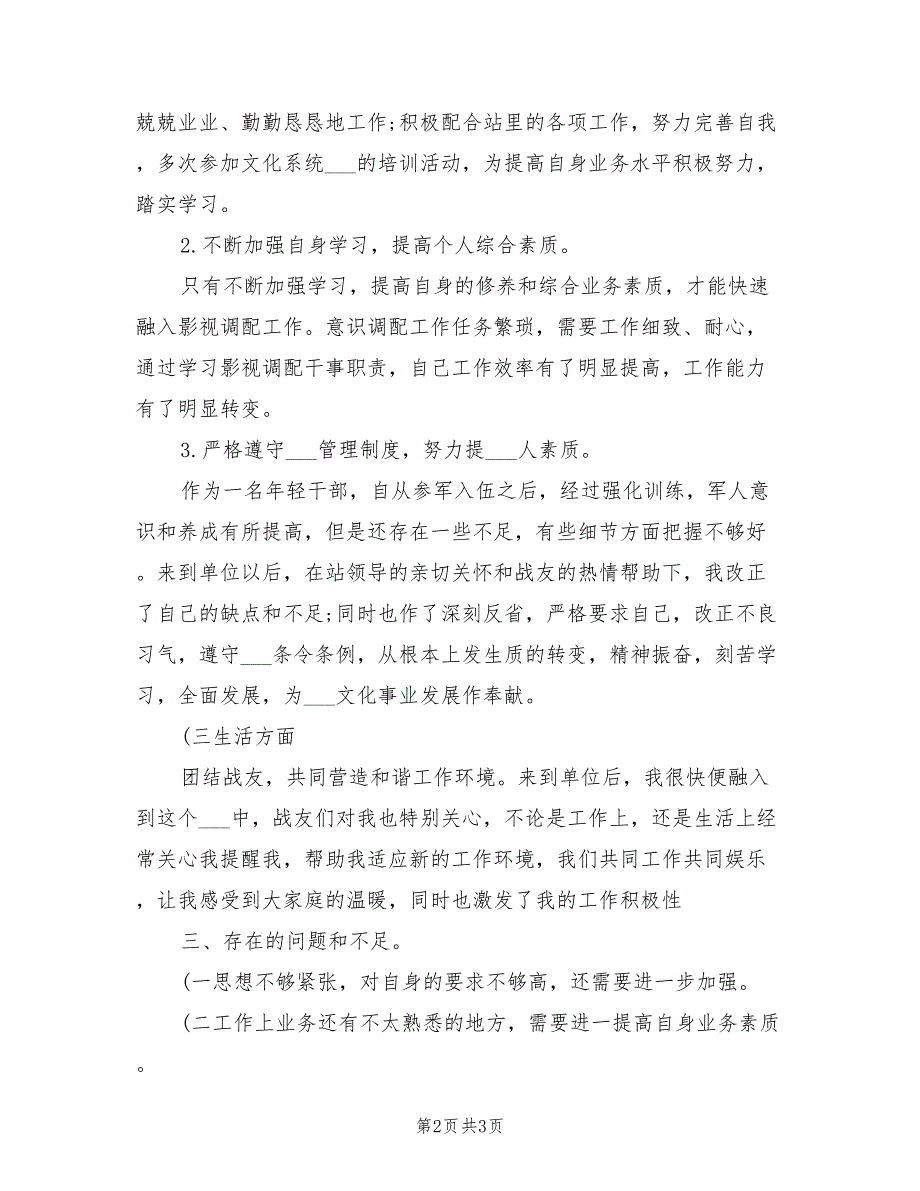 兢兢业业、勤勤恳恳地工作;积极配合站里的各项工作，努力完善自我
，多次参加文化系统___的培训活动，为提高自身业务水平积极努力，
踏实学习。
2.不断加强自身学习，提高个人综合素质。
只有不断加强学习，提高自身的修养和综合业务素质，才能快速
融入影视调配工作。意识调配工作任务繁琐，需要工作细致、耐心，
通过学习影视调配干事职责，自己工作效率有了明显提高，工作能力
有了明显转变。
3.严格遵守___管理制度，努力提___人素质。
作为一名年轻干部，自从参军入伍之后，经过强化训练，军人意
识和养成有所提高，但是还存在一些不足，有些细节方面把握不够好
。来到单位以后，在站领导的亲切关怀和战友的热情帮助下，我改正
了自己的缺点和不足;同时也作了深刻反省，严格要求自己，改正不良
习气，遵守___条令条例，从根本上发生质的转变，精神振奋，刻苦学
习，全面发展，为___文化事业发展作奉献。
(三生活方面
团结战友，共同营造和谐工作环境。来到单位后，我很快便融入
到这个___中，战友们对我也特别关心，不论是工作上，还是生活上经
常关心我提醒我，帮助我适应新的工作环境，我们共同工作共同娱乐
，让我感受到大家庭的温暖，同时也激发了我的工作积极性
三、存在的问题和不足。
(一思想不够紧张，对自身的要求不够高，还需要进一步加强。
(二工作上业务还有不太熟悉的地方，需要进一提高自身业务素质
。
第2页共3页